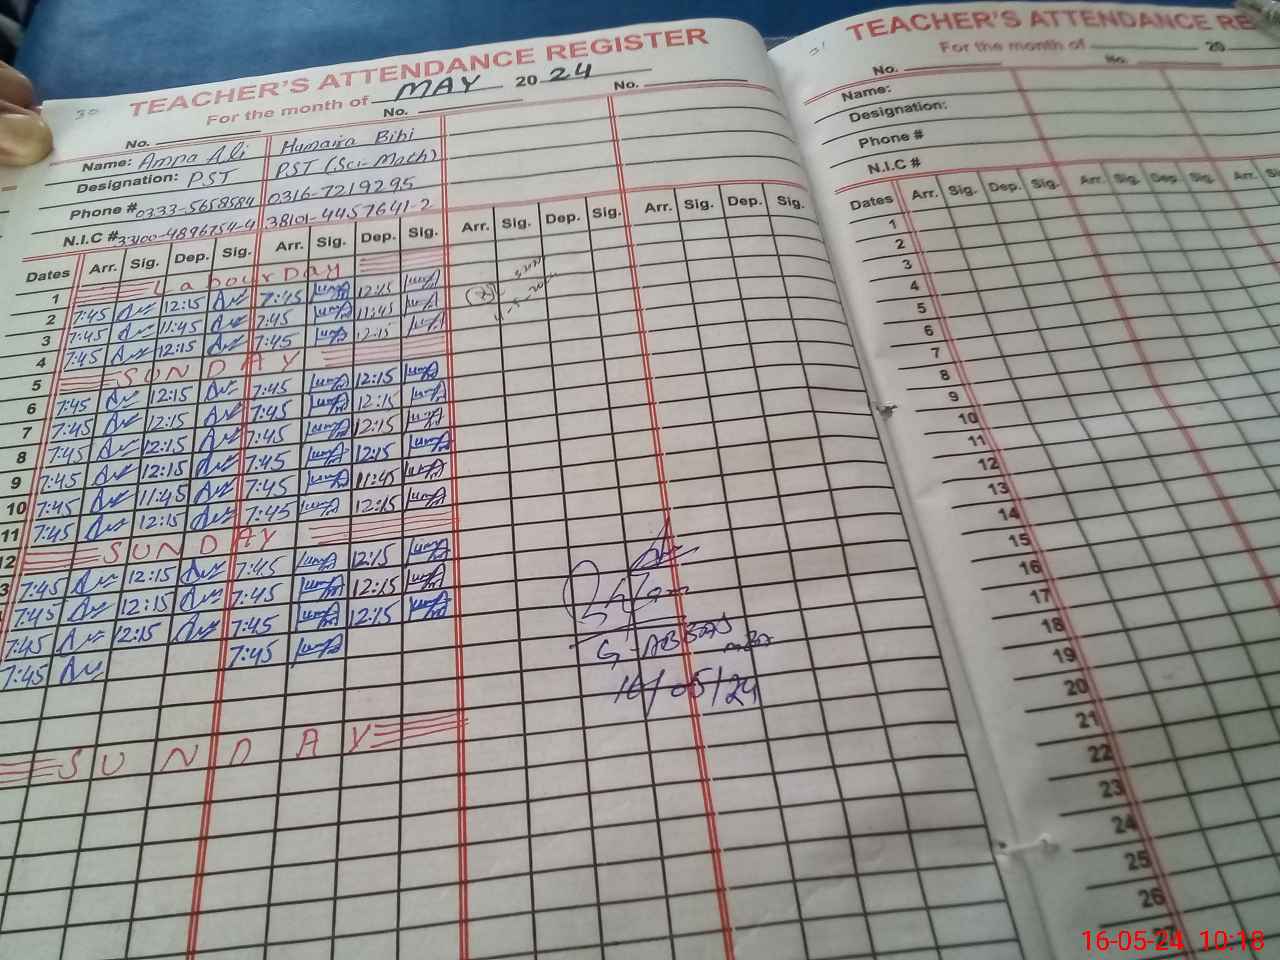 30
TEACHER'S ATTENDANCE REGISTER
For the month of MAY 2024
No. No. No.
Name: Amna Ali Humaira Bibi
Designation: PST PST (Sci-Math)
Phone # 0333-5658584 0316-7219295
N.I.C # 33100-4896754-4 38101-4457641-2
Dates Arr. Sig. Dep. Sig. Arr. Sig. Dep. Sig. Arr. Sig. Dep. Sig. Arr. Sig. Dep. Sig.
1 Labour Day
2 7:45 12:15 7:45 12:15
3 7:45 11:45 7:45 11:45
4 7:45 12:15 7:45 12:15
5 SUNDAY
6 7:45 12:15 7:45 12:15
7 7:45 12:15 7:45 12:15
8 7:45 12:15 7:45 12:15
9 7:45 12:15 7:45 12:15
10 7:45 11:45 7:45 11:45
11 7:45 12:15 7:45 12:15
12 SUNDAY
3 7:45 12:15 7:45 12:15
7:45 12:15 7:45 12:15
7:45 12:15 7:45 12:15
7:45 7:45
SUNDAY
G. ABBAS
16/05/24
31
TEACHER'S ATTENDANCE RE
For the month of 20
No. No.
Name:
Designation:
Phone #
N.I.C #
Dates Arr. Sig. Dep. Sig. Arr. Sig. Dep. Sig. Arr. Sig.
1
2
3
4
5
6
7
8
9
10
11
12
13
14
15
16
17
18
19
20
21
22
23
24
25
26
16-05-24 10:18